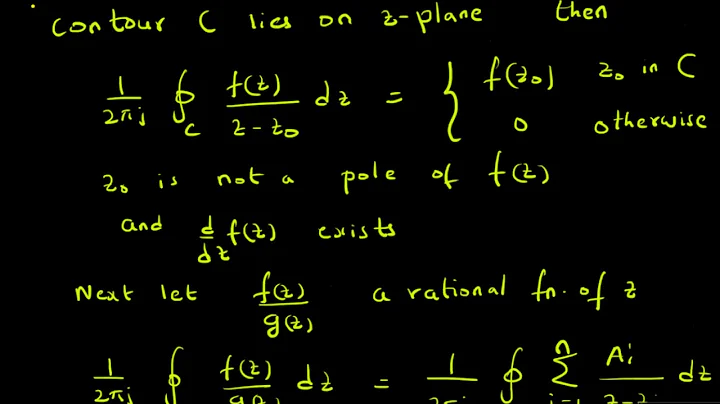 Contour C lies on z-plane then
1/2πj ∮_C f(z)/(z-z₀) dz = { f(z₀) z₀ in C
0 otherwise
z₀ is not a pole of f(z)
and d/dz f(z) exists
Next let f(z)/g(z) a rational fn. of z
1/2πj ∮ f(z)/g(z) dz = 1/2πj ∮ Σ_{i=1}^{n} Aᵢ/(z-zᵢ) dz